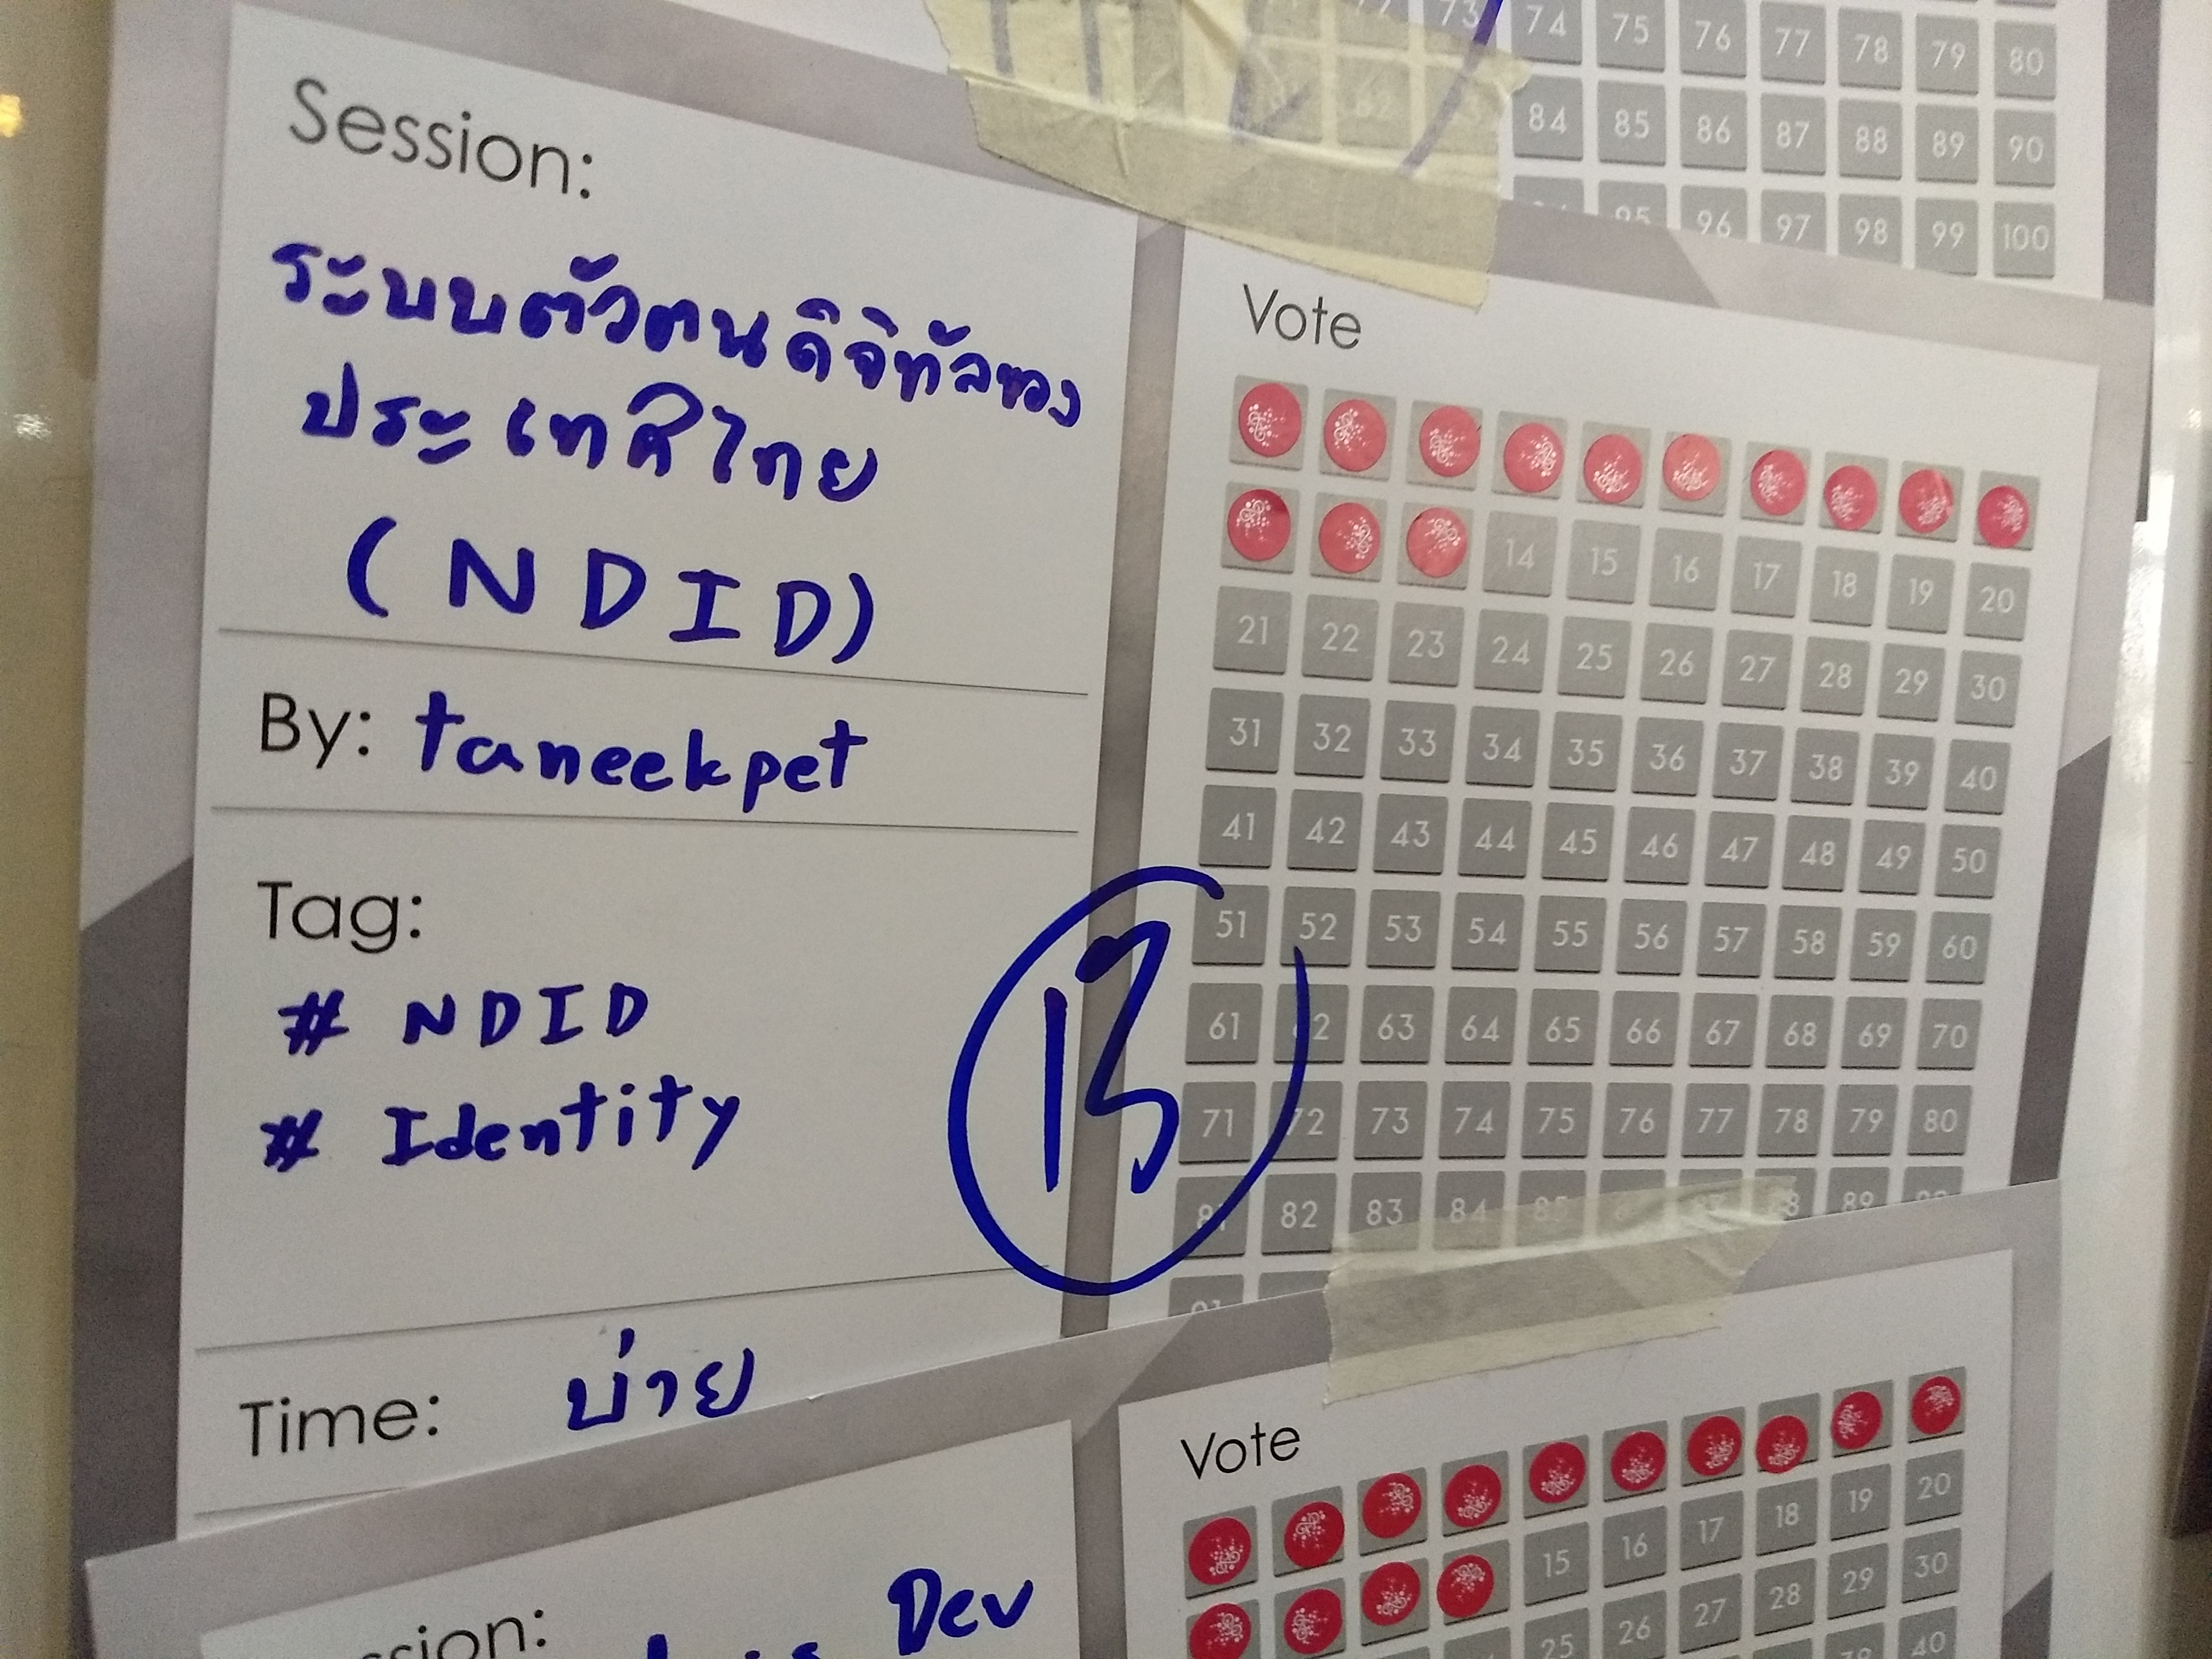 73 74 75 76 77 78 79 80
84 85 86 87 88 89 90
95 96 97 98 99 100
Session:
ระบบตัวตนดิจิทัลของ
ประเทศไทย
(NDID)
By: taneekpet
Tag:
# NDID
# Identity
Time: บ่าย
13
Vote
14 15 16 17 18 19 20
21 22 23 24 25 26 27 28 29 30
31 32 33 34 35 36 37 38 39 40
41 42 43 44 45 46 47 48 49 50
51 52 53 54 55 56 57 58 59 60
61 62 63 64 65 66 67 68 69 70
71 72 73 74 75 76 77 78 79 80
81 82 83 84 85 88 89
Dev
Vote
15 16 17 18 19 20
25 26 27 28 29 30
40